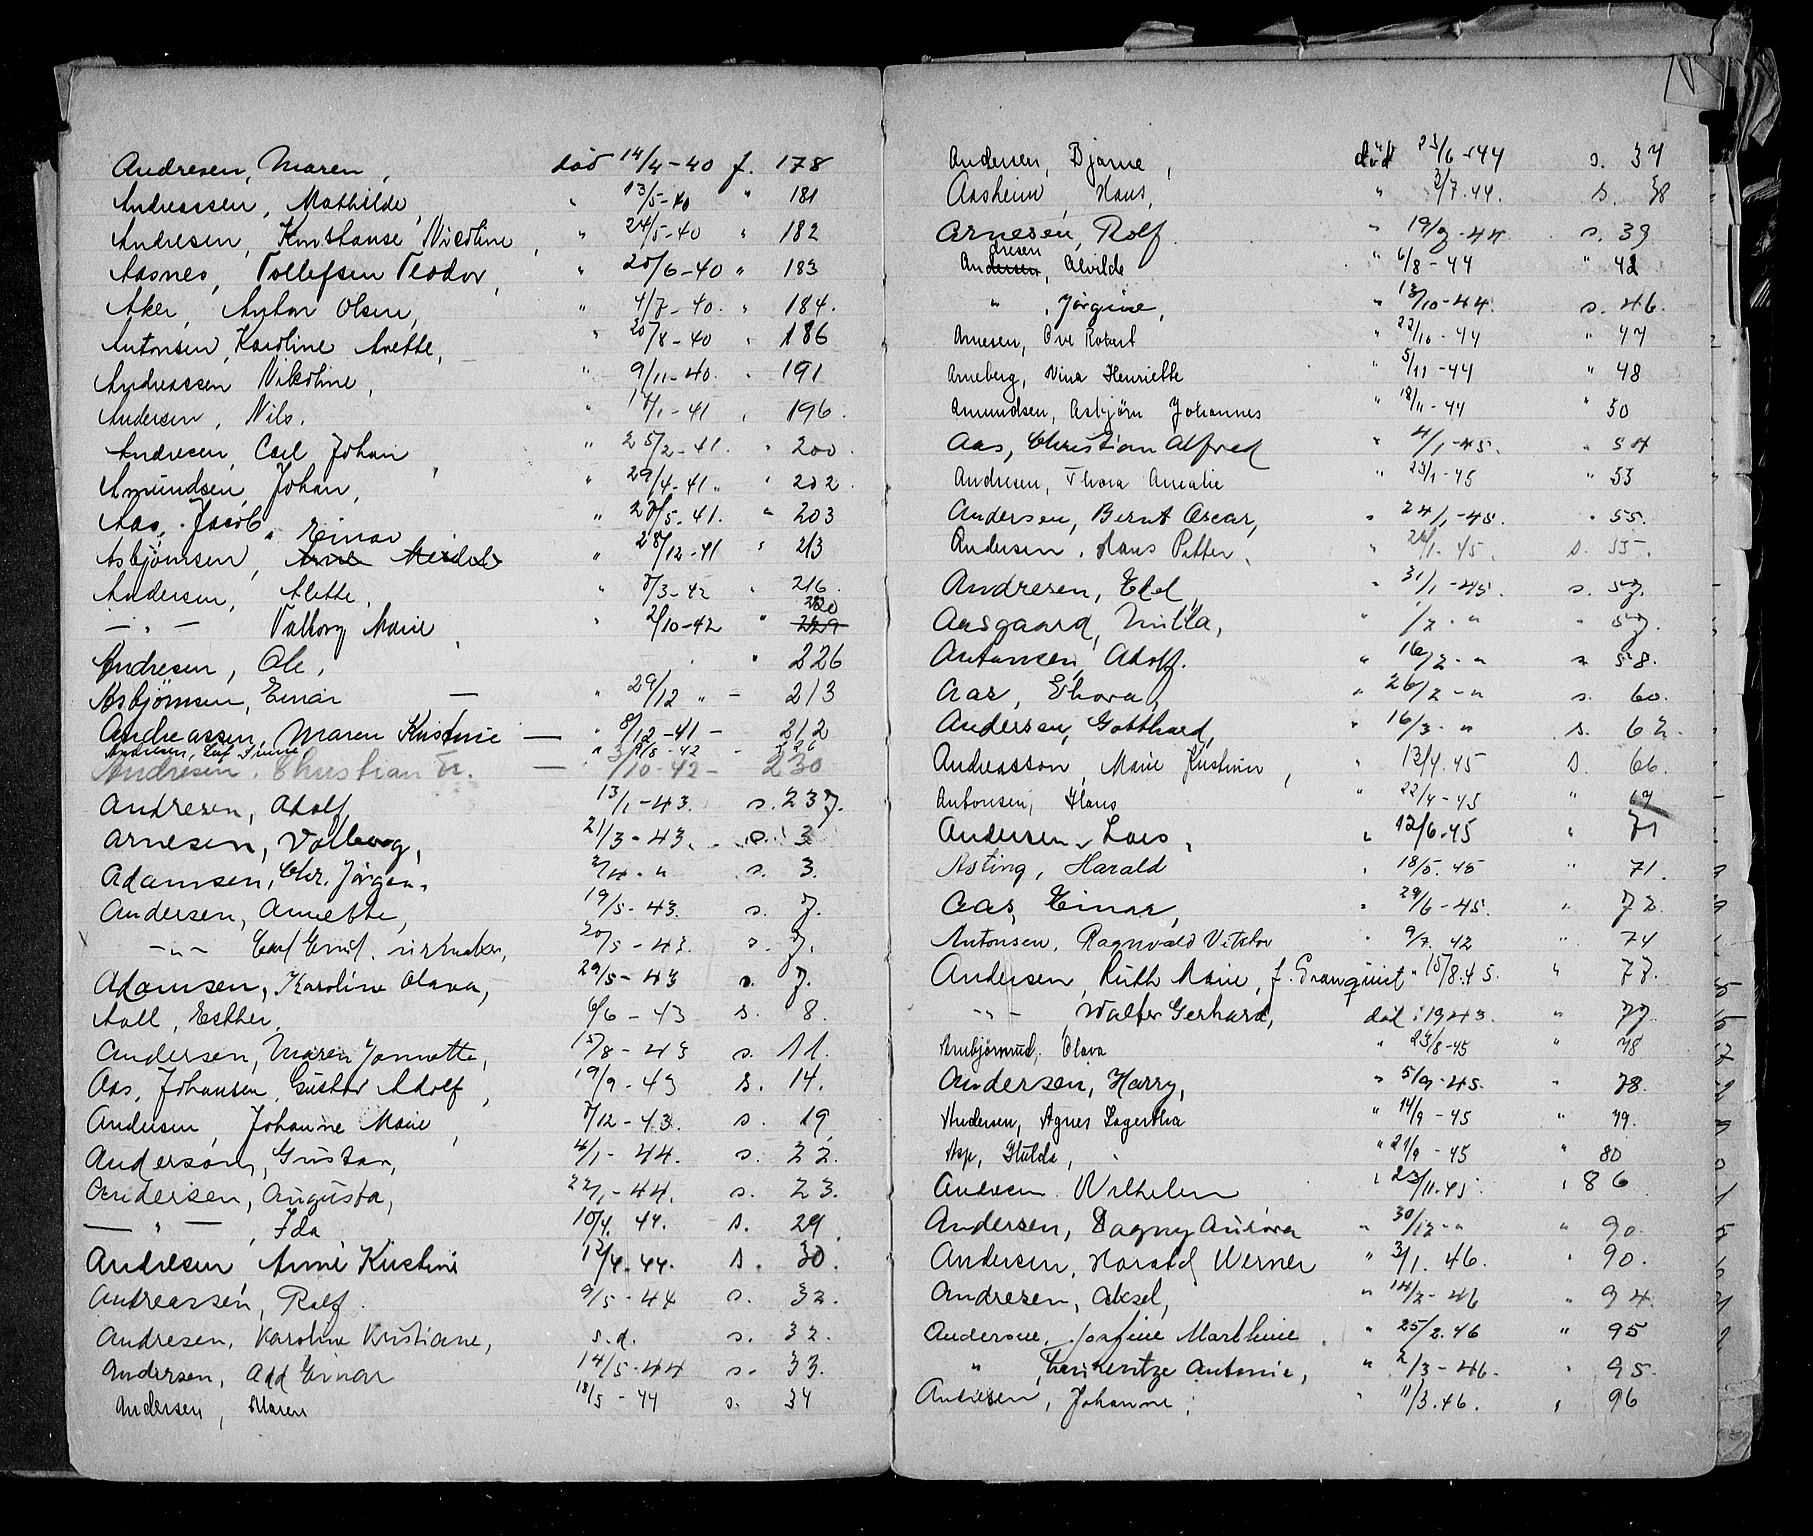 Andresen, Maren, död 14/4-40 f. 178
Andreassen, Mathilde, " 13/5-40 " 181
Andresen, Konstanse Nicoline, " 24/5-40 " 182
Aasnes, Tollefsen Teodor, " 20/6-40 " 183
Aker, Anton Olsen, " 4/7-40. " 184.
Antonsen, Karoline Anette, " 20/8-40 " 186
Andreassen Nikoline, " 9/11-40. " 191
Andersen, Nils. " 17/1-41 " 196.
Andresen, Carl Johan, " 25/2-41. " 200.
Amundsen, Johan, " 29/4-41 " 202.
Aas, Jacob, " 28/5-41. " 203
Einar
Asbjörnsen, " 28/12-41 " 213
Andersen, Alette, " 8/3-42 " 216
220
— " — Valborg Marie, " 2/10-42 " 229
Andresen, Ole, " 226
Asbjörnsen, Einar — " 29/12 " - 213
Andreassen, Maren Kristine — " 8/12-41 - 212
Andresen, Leif Finne " 31/8-42 - 226
Andresen, Christian Fr. — /10-42 - 230
Andresen, Adolf, 13/1-43. s. 237.
Arnesen, Valborg, 21/3-43. s. 3
Adamsen, Chr. Jörgen, 2/4. " s. 3.
Andersen, Annette, 19/5-43. s. 7.
— " — Carl Emil, urmaker, 20/5-43. s. 7.
Adamsen, Karoline Olava, 29/5-43 s. 7.
Aall, Esther, 6/6-43 s. 8.
Andersen, Maren Jannette, 15/8-43 s. 11.
Aas, Johansen, Gustav Adolf, 19/9-43 s. 14.
Andersen, Johanne Marie, 8/12-43. s. 19,
Anderson, Gustav, 4/1-44. s. 22.
Andersen, Augusta, 22/1-44. s. 23.
— " —, Ida, 10/4. 44. s. 29.
Andresen, Anne Kristine 12/4. 44. s. 30.
Andreassen, Rolf. 9/5-44 s. 32.
Andresen, Karoline Kristiane, s.d. s. 32.
Andersen, Add Einar 14/5-44 s. 33.
Andersen, Maren 18/5-44 s. 34
Andersen, Bjarne, död 23/6-44 s. 37
Aasheim, Hans, " 3/7. 44. s. 38
Arnesen, Rolf. " 19/7-44 s. 39
dresen
Andersen, Alvilde " 6/8-44 " 42
" , Jörgine, " 13/10-44. s. 46.
Arnesen, Ove Robert " 22/10-44 " 47
Arneberg, Nina Henriette " 5/11-44 " 48
Amundsen, Asbjörn Johannes " 18/11-44 " 50
Aas, Christian Alfred " 4/1-45. " 54
Andresen, Thora Amalie " 23/1-45 " 53
Andersen, Bernt Oscar, " 24/1-45. " 55.
Andersen, Hans Petter, " 28/1. 45. s. 55.
Andresen, Eld, " 31/1-45. s. 57.
Aasgaard, Milla, " 1/2. " " 57.
Antonsen, Adolf. " 16/2. " s. 58.
Aas, Thora, " 26/2-" s. 60.
Andersen, Gotthard, " 16/3. " s. 62.
Andreasson, Marie Kristine, " 12/4. 45 s. 66.
Antonsen, Hans " 22/4-45 " 67
Andersen, Lars, " 12/6-45 " 71
Asting, Harald " 18/5. 45 " 71.
Aas, Einar, " 29/6-45. " 72.
Antonsen, Ragnvald Vitslov " 9/7. 42 " 74
Andersen, Ruth Marie, f. Granquist " 15/8. 45. " 77.
— " — , Walter Gerhard, död i 1943. " 77
Arnbjörnrud, Olava " 23/8-45 " 78
Andersen, Harry, " 5/9-45. " 78.
Andersen, Agnes Lagertha " 14/9-45 " 79.
Asp, Hulda, " 21/9-45 " 80
Andresen, Wilhelm " 23/11. 45. " 86
Andersen, Dagny Aurora " 30/12-" " 90.
Andersen, Harald Werner " 3/1. 46. " 90.
Andresen, Aksel, " 14/2-46 " 94.
Andersen, Josefine Marthine. " 25/2. 46 " 95
" , Laurentze Antonie, " 2/3-46. " 95.
Andresen, Johanne, " 11/3. 46. " 96